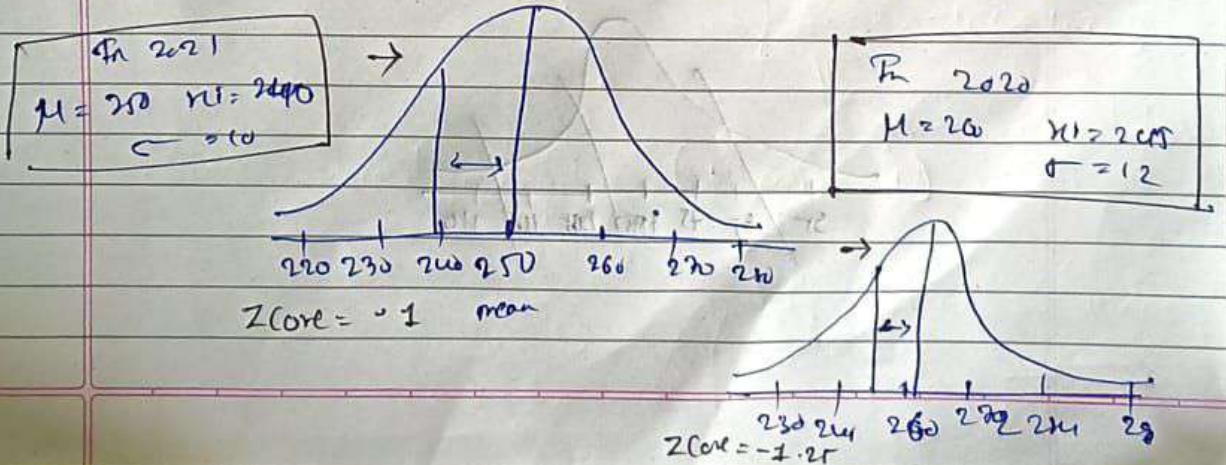 In 2021
μ = 250 xi = 240
σ = 10
→
220 230 240 250 260 270 280
ZCore = -1 mean
In 2020
μ = 260
σ = 12
→
260 272
ZCore = -1.25